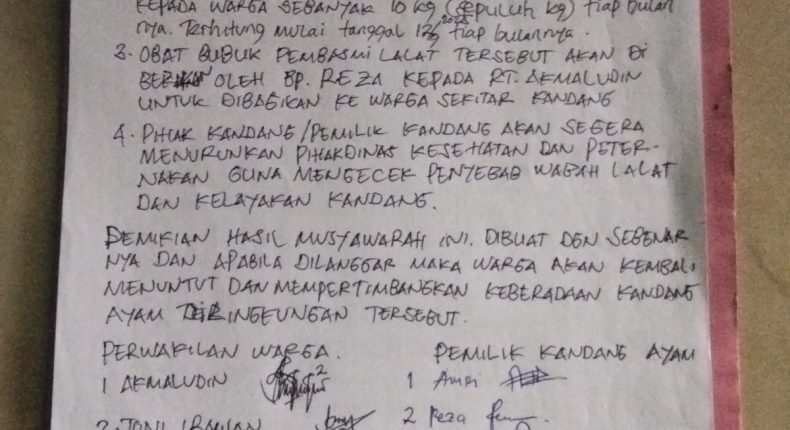 KEPADA WARGA SEBANYAK 10 kg (sepuluh kg) tiap bulan
nya. Terhitung mulai tanggal tiap bulannya.
3. OBAT BUBUK PEMBASMI LALAT TERSEBUT AKAN DI
BERIKAN OLEH BP. REZA KEPADA RT. AKMALUDIN
UNTUK DIBAGIKAN KE WARGA SEKITAR KANDANG
4. PIHAK KANDANG/PEMILIK KANDANG AKAN SEGERA
MENURUNKAN PIHAK DINAS KESEHATAN DAN PETER-
NAKAN GUNA MENGECEK PENYEBAB WABAH LALAT
DAN KELAYAKAN KANDANG.
DEMIKIAN HASIL MUSYAWARAH INI. DIBUAT DEN SEBENAR
NYA DAN APABILA DILANGGAR MAKA WARGA AKAN KEMBALI
MENUNTUT DAN MEMPERTIMBANGKAN KEBERADAAN KANDANG
AYAM LINGKUNGAN TERSEBUT.
PERWAKILAN WARGA. PEMILIK KANDANG AYAM
1 AKMALUDIN 1 Amri
2. JONI IRAWAN 2 Reza